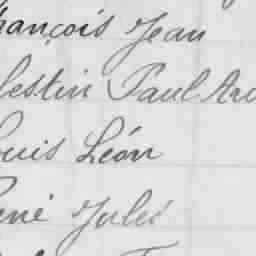 François Jean
lestin Paul
ouis Léon
ené Jules